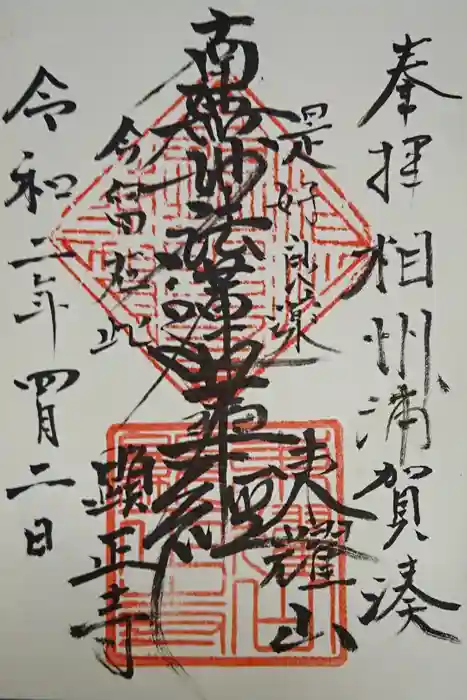 奉拝 相州浦賀湊
是好良薬
耀山
南無妙法蓮華経
今留在此
顕正寺
令和二年四月二日